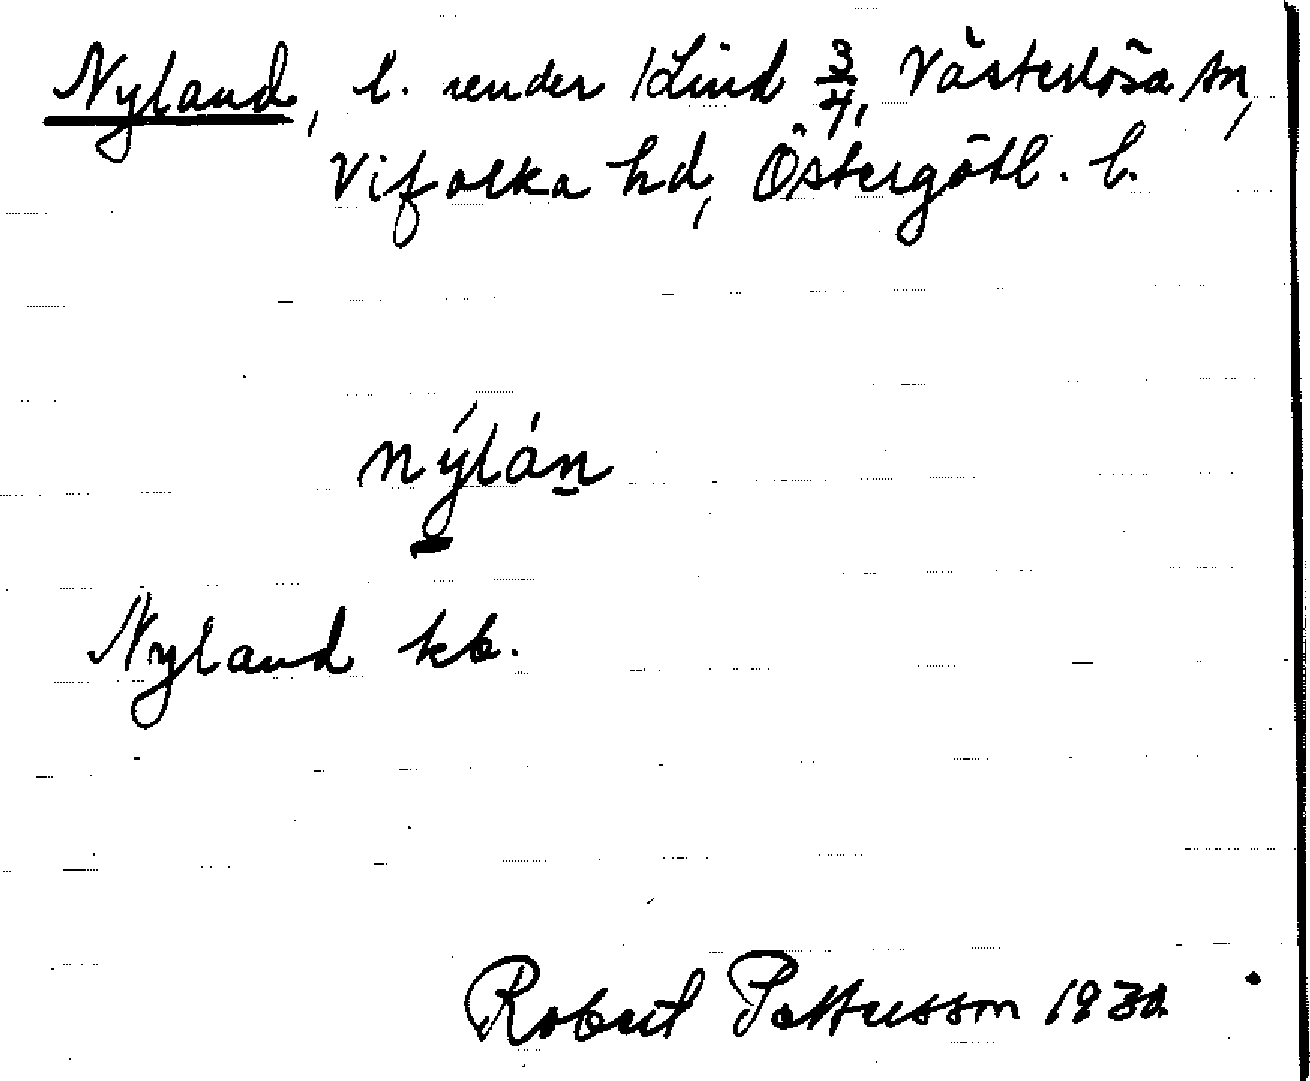 Nyland, l. under Klind 3/4, Västerlösa sn,
Vifolka hd, Östergötl. l.
nýlán
Nyland kb.
Robert Pettersson 1930.